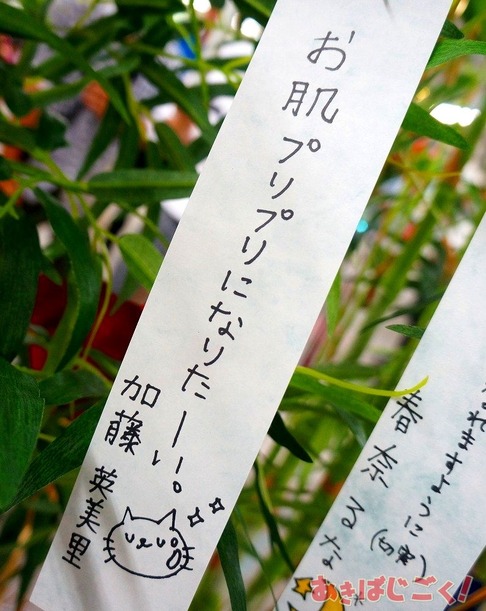 お肌プリプリになりたーい。
加藤 英美里
られますように
(切実)
春奈るな
あきばじごく!